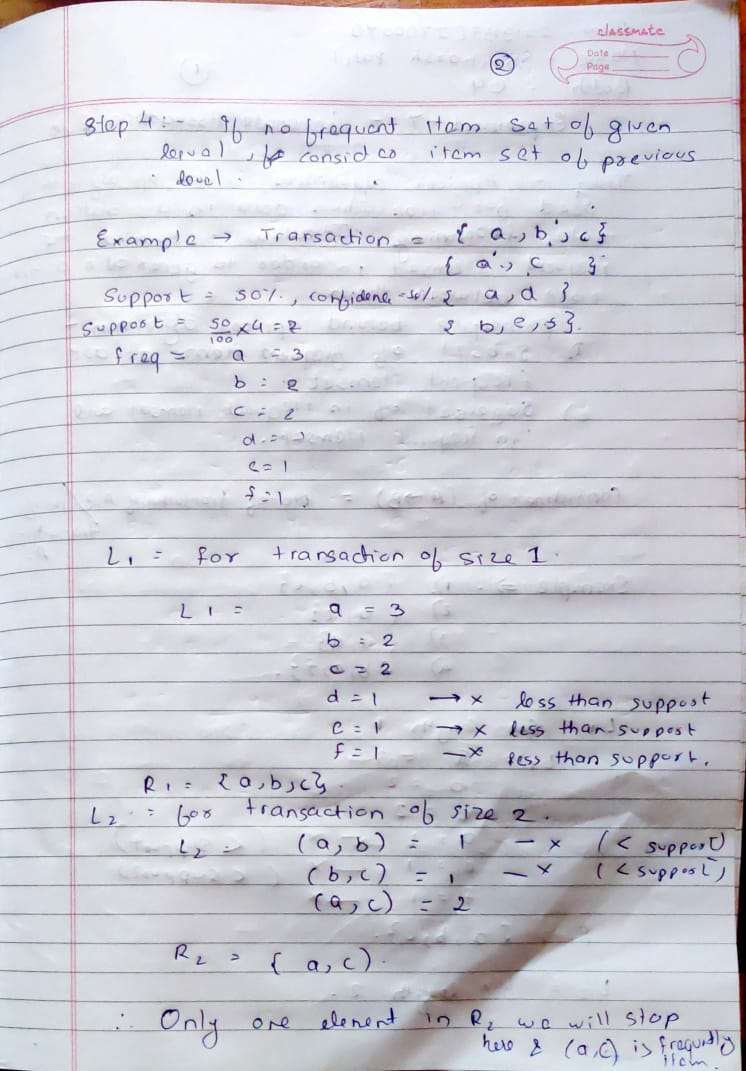 classmate
Date
Page
2
Step 4:- If no frequent item set of given
level, consider item set of previous
level.
Example → Transaction = { a, b, c}
{ a, c }
Support = 50%, confidence = 50% { a, d }
Support = 50/100 x 4 = 2 { b, e, f}.
freq = a = 3
b = 2
c = 2
d =
e = 1
f = 1
L1 = for transaction of size 1.
L1 = a = 3
b = 2
c = 2
d = 1 → x less than support
e = 1 → x less than support
f = 1 — x less than support.
R1 = {a,b,c}.
L2 = for transaction of size 2.
L2 = (a, b) = 1 — x (< support)
(b, c) = 1 — x (< support)
(a, c) = 2
R2 = { a, c).
∴ Only one element in R2 we will stop
here & (a,c) is frequently
item.